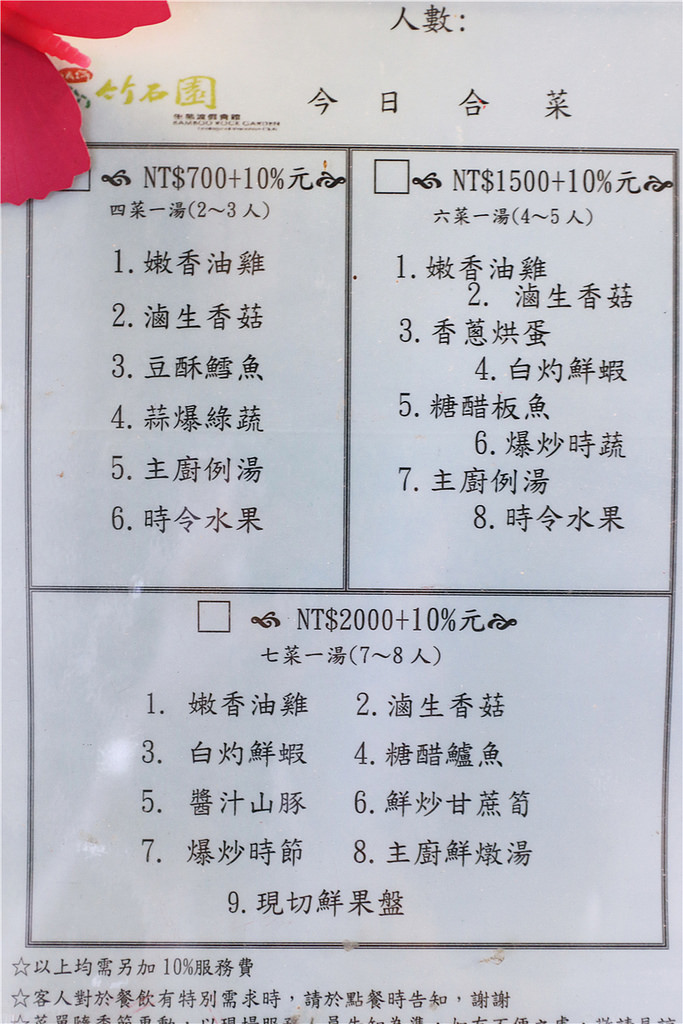 人數：
竹石園
生態渡假貴館
BAMBOO ROCK GARDEN
今日合菜
NT$700+10%元
四菜一湯(2～3人)
1.嫩香油雞
2.滷生香菇
3.豆酥鱈魚
4.蒜爆綠蔬
5.主廚例湯
6.時令水果
NT$1500+10%元
六菜一湯(4～5人)
1.嫩香油雞
2. 滷生香菇
3.香蔥烘蛋
4.白灼鮮蝦
5.糖醋板魚
6.爆炒時蔬
7.主廚例湯
8.時令水果
NT$2000+10%元
七菜一湯(7～8人)
1. 嫩香油雞 2.滷生香菇
3. 白灼鮮蝦 4.糖醋鱸魚
5. 醬汁山豚 6.鮮炒甘蔗筍
7. 爆炒時節 8.主廚鮮燉湯
9.現切鮮果盤
☆以上均需另加10%服務費
☆客人對於餐飲有特別需求時，請於點餐時告知，謝謝
☆菜單隨季節更動，以現場服務人員告知為準，如有不便之處，敬請見諒